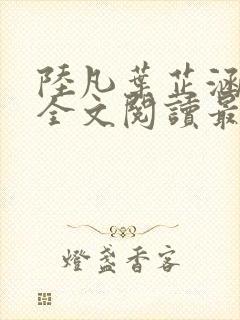 陸凡葉芷涵
全文閱讀最
燈盞香客